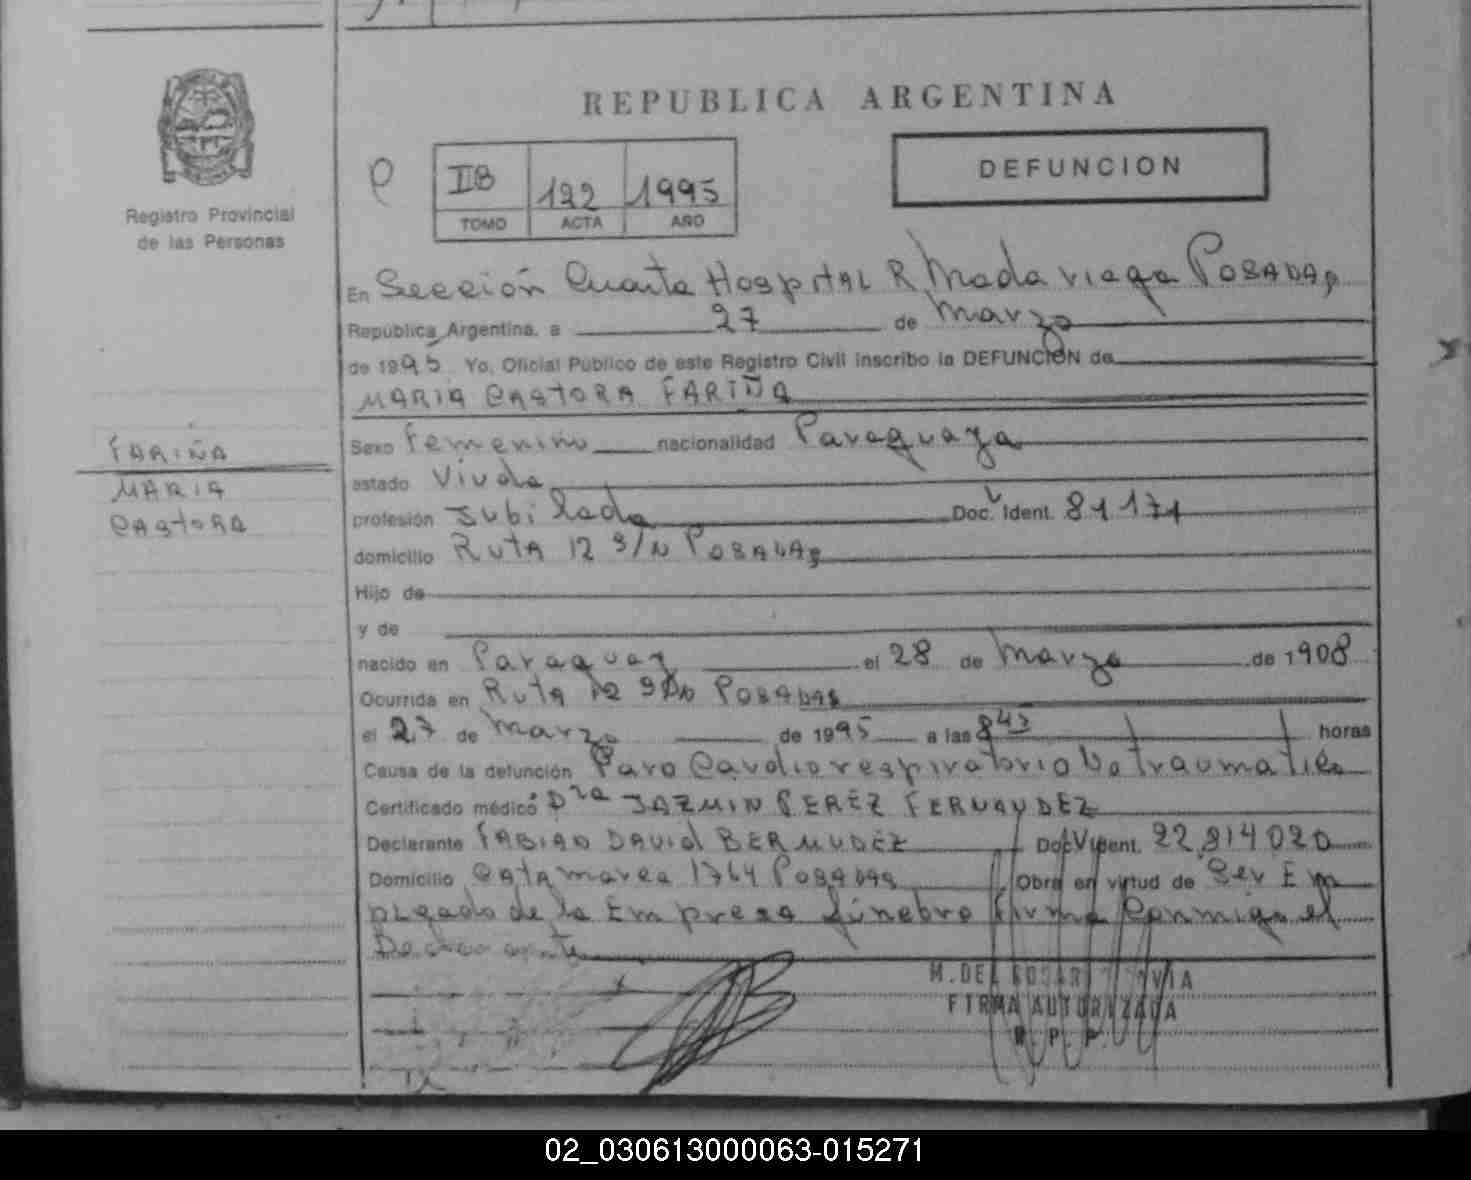 REPUBLICA ARGENTINA
DEFUNCION
IIB 122 1995
TOMO ACTA AÑO
Registro Provincial
de las Personas
En Sección Cuarta Hospital R. Madariaga Posadas
República Argentina, a 27 de Marzo
de 1995 Yo, Oficial Público de este Registro Civil inscribo la DEFUNCIÓN de
MARIA CASTORA FARIÑA
FARIÑA
MARIA
CASTORA
Sexo Femenino nacionalidad Paraguaya
estado Viuda
profesión Jubilada Doc. Ident. 81171
domicilio RUTA 12 S/N POSADAS
Hijo de
y de
nacido en Paraguay el 28 de Marzo de 1908
Ocurrida en RUTA 12 S/N POSADAS
el 27 de Marzo de 1995 a las 8 43 horas
Causa de la defunción Paro Cardiorespiratorio No traumatico
Certificado médico Dra JAZMIN PEREZ FERNANDEZ
Declarante FABIAN DAVID BERMUDEZ Doc. Ident. 22.814020
Domicilio Catamarca 1764 POSADAS Obra en virtud de Ser Em
pleado de la Empresa fúnebre firma conmigo el
Declarante
M. DEL
FIRMA AUTORIZADA
R. P. P.
02_030613000063-015271